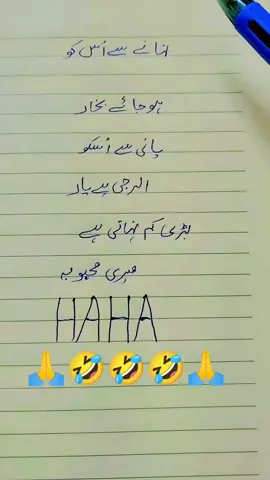 نہانے سے اُس کو
ہو جائے بخار
پانی سے اُسکو
الرجی ہے یار
بڑی کم نہاتی ہے
میری محبوبہ
HAHA
🙏🤣🤣🤣🙏